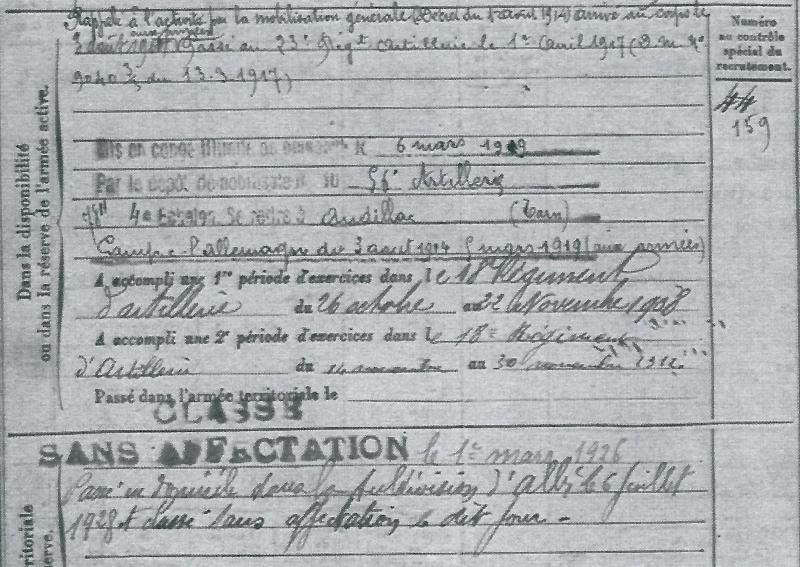 Rappelé à l'activité par la mobilisation générale (Décret du 1er août 1914) arrivé au corps le
aux armées
3 août 1914 Passé au 23e Régt artillerie le 1er avril 1917 (D.M. No
9040 3/3 du 13.3.1917)
Numéro
au contrôle
spécial du
recrutement.
44
159
Dans la disponibilité
ou dans la réserve de l'armée active.
Mis en congé illimité de 6 mars 1919
Par le dépôt de 56e Artillerie
4e Echelon Se retire à Andillac (Tarn)
Campagne c. l'allemagne du 3 août 1914 5 mars 1919 (aux armées)
A accompli une 1re période d'exercices dans le 18e Régiment
d'artillerie du 26 octobre au 22 Novembre 1908
A accompli une 2e période d'exercices dans le 18e Régiment
d'Artillerie du 14 novembre au 30 novembre 1912
Passé dans l'armée territoriale le
CLASSÉ
SANS AFFECTATION le 1er mars 1926
Passé en domicile dans la subdivision d'albi le 6 juillet
1928 et classé sans affectation le dit jour.